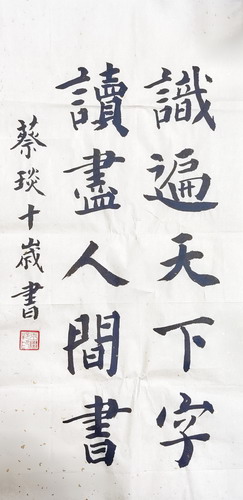 識遍天下字
讀盡人間書
蔡琰十歲書